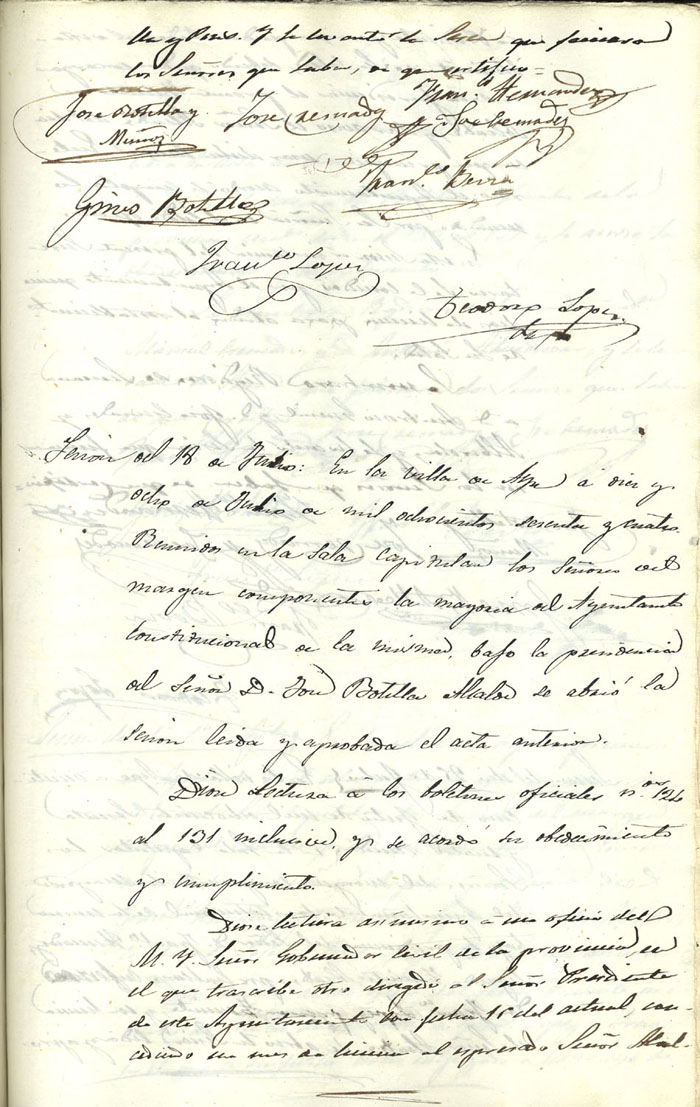 y se levantó la Sesion que firmaron
los Señores que saben, de que certifico=
Jose Botilla y
Muñoz
Jose Bernadez
Fran.co Hernandez
Jose Bernadez
Fran.co Berná
Gines Botilla
Fran.co Lopez
Teodoro Lopez
Sesion del 18 de Junio: En la villa de Aspe á diez y
ocho de Junio de mil ochocientos sesenta y cuatro.
Reunidos en la sala capitular los Señores del
margen componentes la mayoria del Ayuntamto
Constitucional de la misma, bajo la presidencia
del Señor D. José Botilla Alcalde se abrió la
sesion leida y aprobada el acta anterior.
Diose Lectura á los boletines oficiales n.os 124
al 131 inclusives, y se acordó su obedecimiento
y cumplimiento.
Diose lectura asimismo á un oficio del
M. Y. Señor Gobernador Civil de la provincia, en
el que trascribe otro dirigido al Señor Presidente
de este Ayuntamiento con fecha 15 del actual, con-
cediendo un mes de licencia al espresado Señor Alcal-